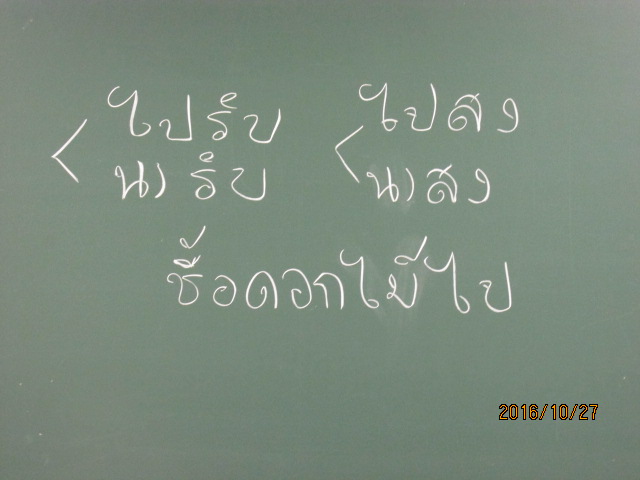 ไปรับ ไปสง
มารับ มาสง
ซื้อดอกไม้ไป
2016/10/27